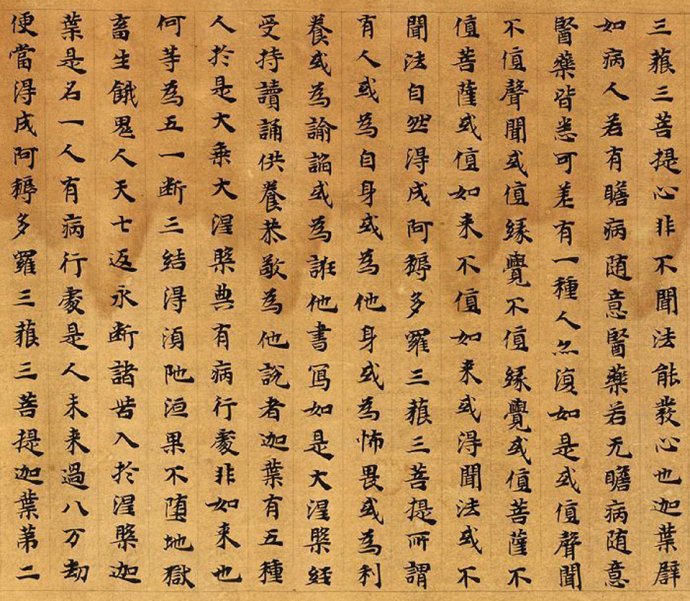 三藐三菩提心非不聞法能發心也迦葉辟
如病人若有瞻病随意醫藥若无瞻病随意
醫藥皆悉可差有一種人亦復如是或值聲聞
不值聲聞或值緣覺不值緣覺或值菩薩不
值菩薩或值如来不值如来或得聞法或不
聞法自然得成阿耨多羅三藐三菩提所謂
有人或為自身或為他身或為怖畏或為利
養或為諭諂或為誑他書寫如是大涅槃經
受持讀誦供養恭敬為他說者迦葉有五種
人於是大乘大涅槃典有病行處非如来也
何等為五一断三結得湏陁洹果不堕地獄
畜生餓鬼人天七返永断諸苦入於涅槃迦
葉是名一人有病行處是人未来過八万劫
便當得成阿耨多羅三藐三菩提迦葉第二